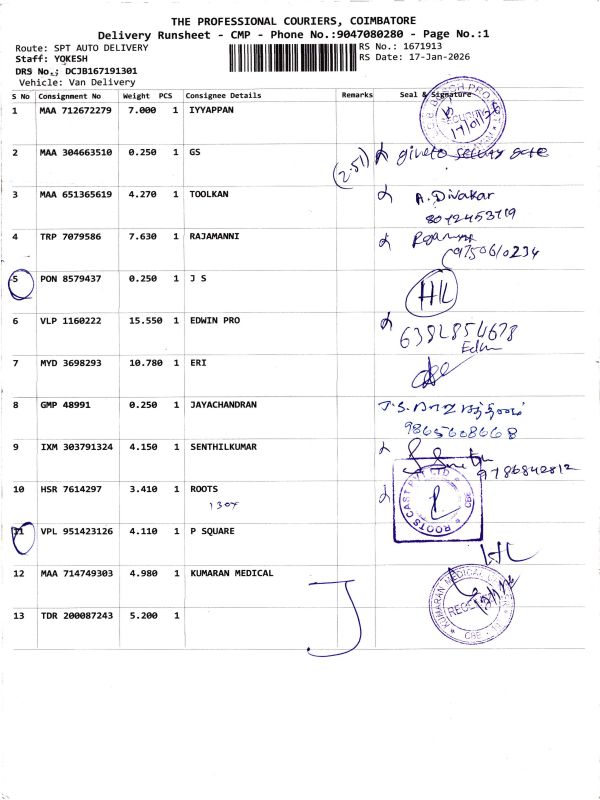 THE PROFESSIONAL COURIERS, COIMBATORE
Delivery Runsheet - CMP - Phone No.:9047080280 - Page No.:1
Route: SPT AUTO DELIVERY
RS No.: 1671913
Staff: YOKESH
RS Date: 17-Jan-2026
DRS No.: DCJB167191301
Vehicle: Van Delivery
S No Consignment No Weight PCS Consignee Details Remarks Seal & Signature
1 MAA 712672279 7.000 1 IYYAPPAN
17/01/26
2 MAA 304663510 0.250 1 GS (2.51) give to
3 MAA 651365619 4.270 1 TOOLKAN A. Divakar
8072453719
4 TRP 7079586 7.630 1 RAJAMANNI
9750610234
5 PON 8579437 0.250 1 J S
6 VLP 1160222 15.550 1 EDWIN PRO
6382854678
Edwin
7 MYD 3698293 10.780 1 ERI
8 GMP 48991 0.250 1 JAYACHANDRAN
9865608668
9 IXM 303791324 4.150 1 SENTHILKUMAR
9786842812
10 HSR 7614297 3.410 1 ROOTS
1304
ROOTS CAST PVT LTD CBE
11 VPL 951423126 4.110 1 P SQUARE
12 MAA 714749303 4.980 1 KUMARAN MEDICAL
KUMARAN MEDICAL CENTER
CBE
13 TDR 200087243 5.200 1
J